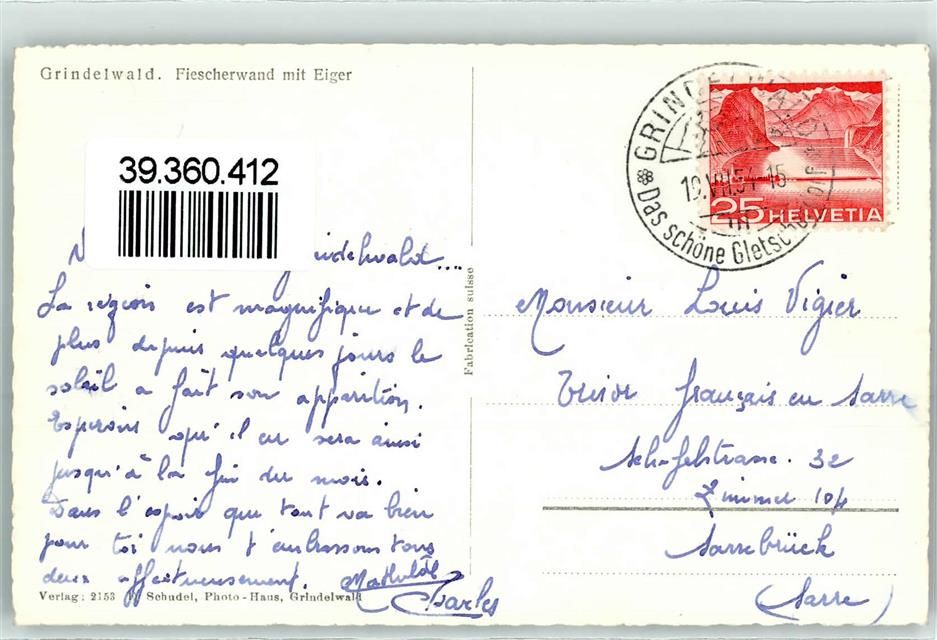 Grindelwald. Fiescherwand mit Eiger
39.360.412
GRINDELWALD
Das schöne Gletscherdorf
10.VII.54-15
25 HELVETIA
La région est magnifique et de
plus depuis quelques jours le
soleil a fait son apparition.
Espérons qu'il en sera ainsi
jusqu'à la fin du mois.
Dans l'espoir que tout va bien
pour toi nous t'embrassons tous
deux affectueusement. Mathilde
Charles
Verlag: 2153 Schudel, Photo-Haus, Grindelwald
Fabrication suisse
Monsieur Louis Vigier
Trésor français en Sarre
32
Zimmer 104
Sarrebrück
(Sarre)